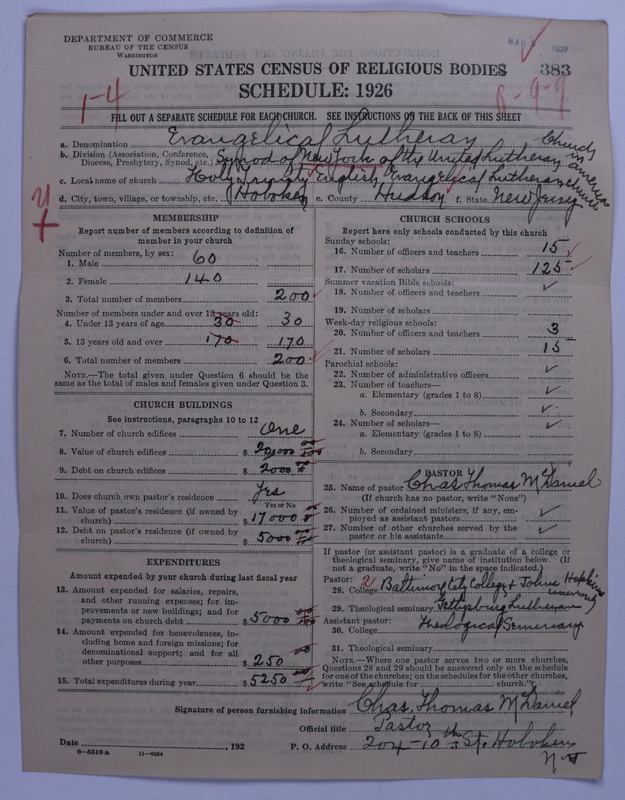 DEPARTMENT OF COMMERCE
BUREAU OF THE CENSUS
WASHINGTON
383
UNITED STATES CENSUS OF RELIGIOUS BODIES
SCHEDULE: 1926
1-4
8-9-9
FILL OUT A SEPARATE SCHEDULE FOR EACH CHURCH. SEE INSTRUCTIONS ON THE BACK OF THIS SHEET
a. Denomination Evangelical Lutheran
b. Division (Association, Conference, Diocese, Presbytery, Synod, etc.) Synod of New York of the United Lutheran Church in America
c. Local name of church Holy Trinity English Evangelical Lutheran Church
d. City, town, village, or township, etc. Hoboken e. County Hudson f. State New Jersey
MEMBERSHIP
Report number of members according to definition of
member in your church
Number of members, by sex:
1. Male 60
2. Female 140
3. Total number of members 200
Number of members under and over 13 years old:
4. Under 13 years of age 30 30
5. 13 years old and over 170 170
6. Total number of members 200
NOTE.—The total given under Question 6 should be the
same as the total of males and females given under Question 3.
CHURCH BUILDINGS
See instructions, paragraphs 10 to 12
7. Number of church edifices One
8. Value of church edifices $ 20,000
9. Debt on church edifices $ 2000
10. Does church own pastor's residence Yes
Yes or No
11. Value of pastor's residence (if owned by
church) $ 17000
12. Debt on pastor's residence (if owned by
church) $ 5000
EXPENDITURES
Amount expended by your church during last fiscal year
13. Amount expended for salaries, repairs,
and other running expenses; for im-
provements or new buildings; and for
payments on church debt $ 5000
14. Amount expended for benevolences, in-
cluding home and foreign missions; for
denominational support; and for all
other purposes $ 250
15. Total expenditures during year $ 5250
CHURCH SCHOOLS
Report here only schools conducted by this church
Sunday schools:
16. Number of officers and teachers 15
17. Number of scholars 125
Summer vacation Bible schools:
18. Number of officers and teachers
19. Number of scholars
Week-day religious schools:
20. Number of officers and teachers 3
21. Number of scholars 15
Parochial schools:
22. Number of administrative officers
23. Number of teachers—
a. Elementary (grades 1 to 8)
b. Secondary
24. Number of scholars—
a. Elementary (grades 1 to 8)
b. Secondary
PASTOR
25. Name of pastor Chas Thomas McDaniel
(If church has no pastor, write "None")
26. Number of ordained ministers, if any, em-
ployed as assistant pastors
27. Number of other churches served by the
pastor or his assistants
If pastor (or assistant pastor) is a graduate of a college or
theological seminary, give name of institution below. (If
not a graduate, write "No" in the space indicated.)
Pastor: 2
28. College Baltimore City College & Johns Hopkins University
29. Theological seminary Gettysburg Lutheran
Assistant pastor: Theological Seminary
30. College
31. Theological seminary
NOTE.—Where one pastor serves two or more churches,
Questions 28 and 29 should be answered only on the schedule
for one of the churches; on the schedules for the other churches,
write "See schedule for church."
Signature of person furnishing information Chas. Thomas McDaniel
Official title Pastor
Date , 192 P. O. Address 204-10th St. Hoboken
N.J.
8-5518 a 11-9054